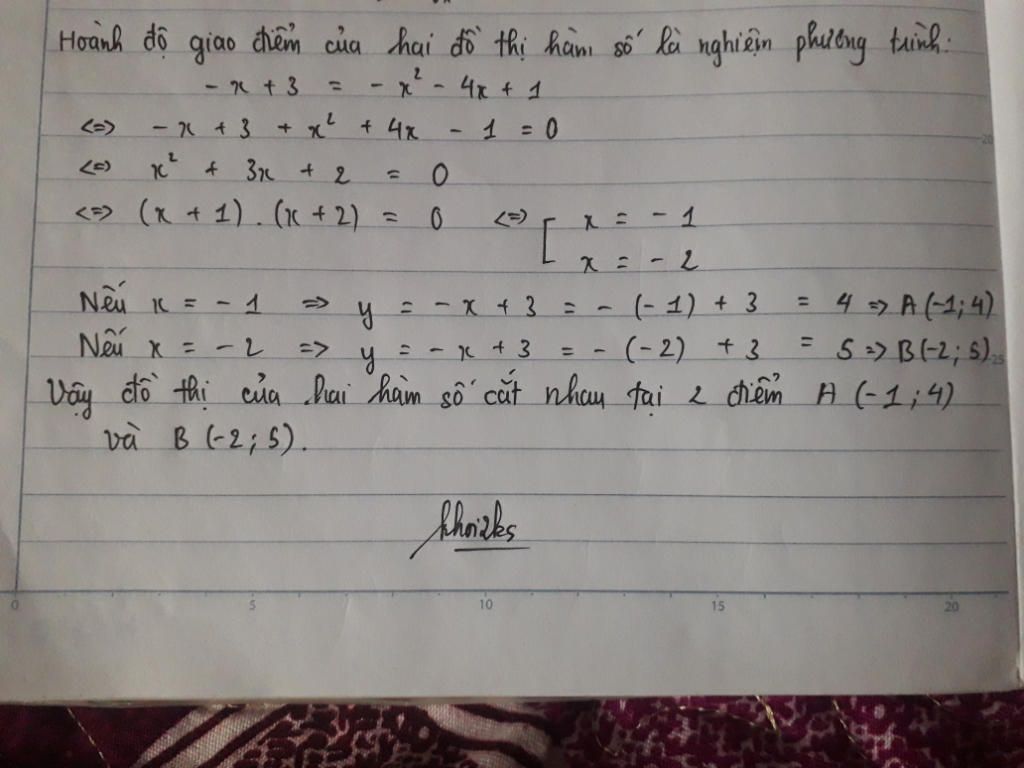 Hoành độ giao điểm của hai đồ thị hàm số là nghiệm phương trình:
- x + 3 = - x² - 4x + 1
<=> - x + 3 + x² + 4x - 1 = 0
<=> x² + 3x + 2 = 0
<=> (x + 1) . (x + 2) = 0 <=> [ x = - 1
x = - 2
Nếu x = - 1 => y = - x + 3 = - (-1) + 3 = 4 => A (-1; 4)
Nếu x = - 2 => y = - x + 3 = - (-2) + 3 = 5 => B (-2; 5)
Vậy đồ thị của hai hàm số cắt nhau tại 2 điểm A (-1; 4)
và B (-2; 5).
khoi2ks
0 5 10 15 20
20
25